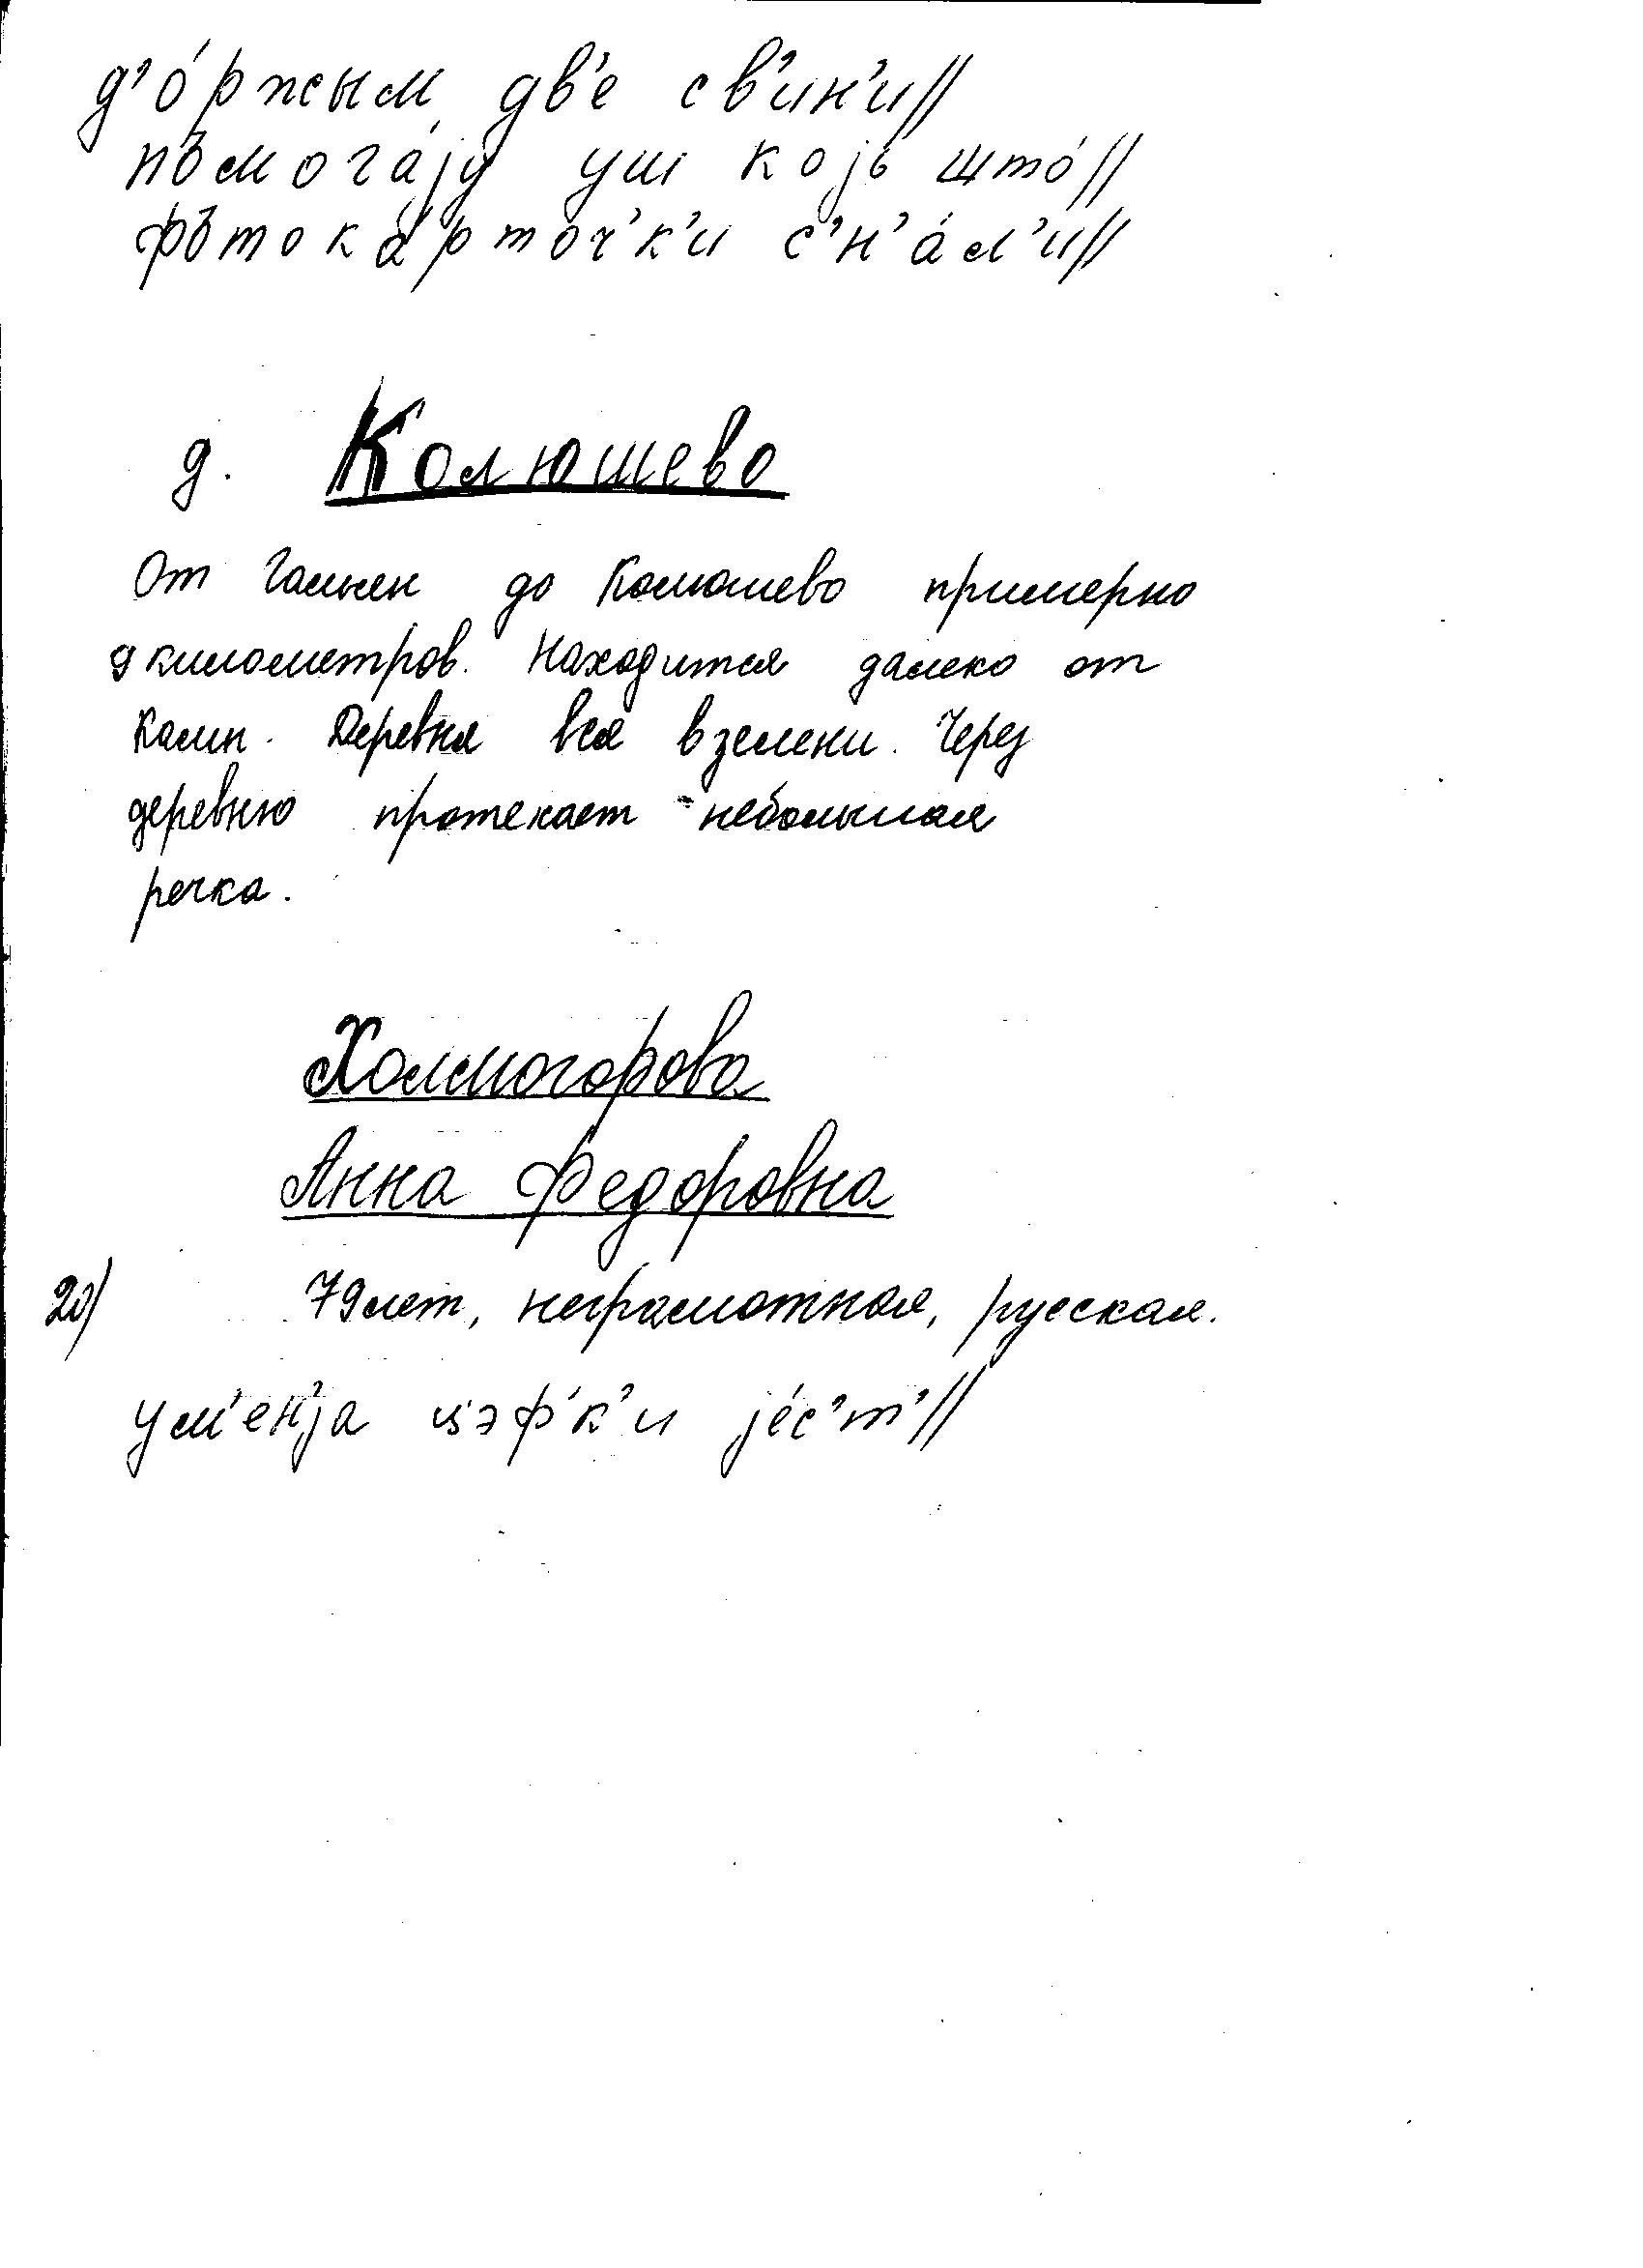 д’о́ржым две св’ин’и//
пъмога́jу уш којь што́//
фътока́рточ’к’и с’н’а́л’и//
д. Колюшево
От Гольян до Колюшево примерно
9 километров. Находится далеко от
Камы. Деревня вся в зелени. Через
деревню протекает небольшая
речка.
Холмогорова
Анна Федоровна
20) 79 лет, неграмотная, русская.
ум’ен’jа цэф’к’и jе́с’т’//